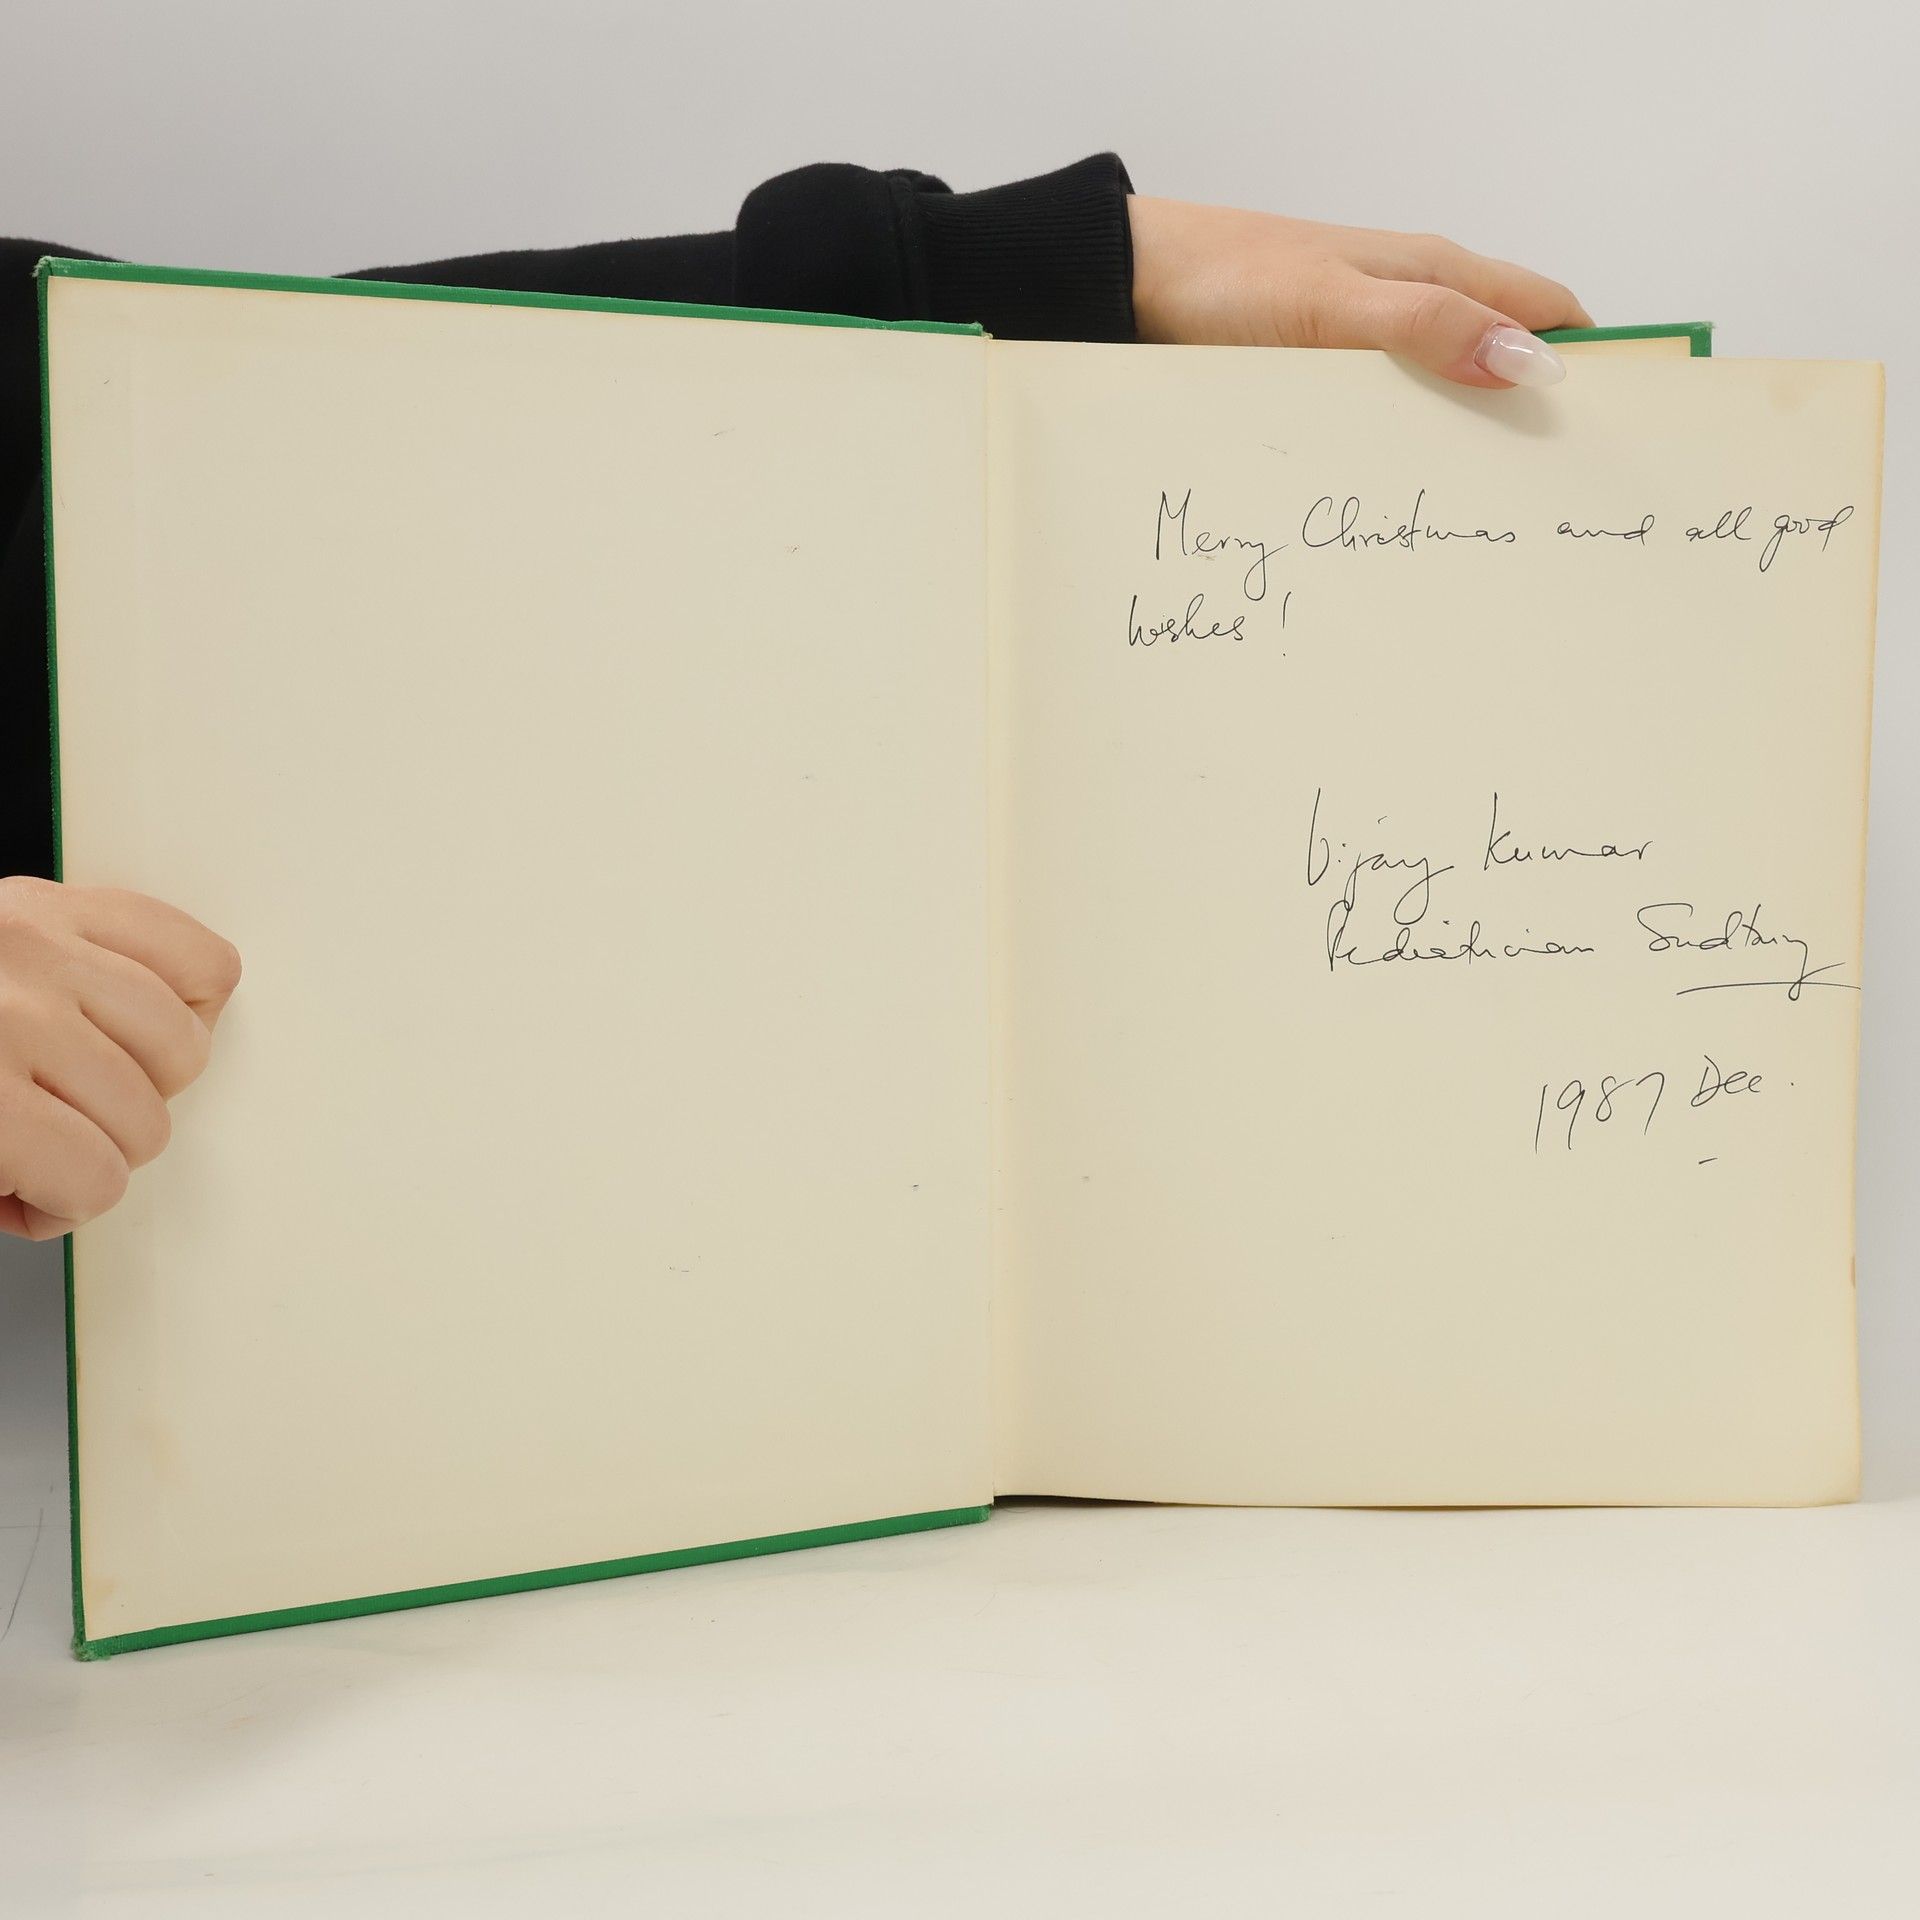 Merry Christmas and all good
wishes!
Vijay Kumar
Pediatrician Sudbury
1987 Dec.